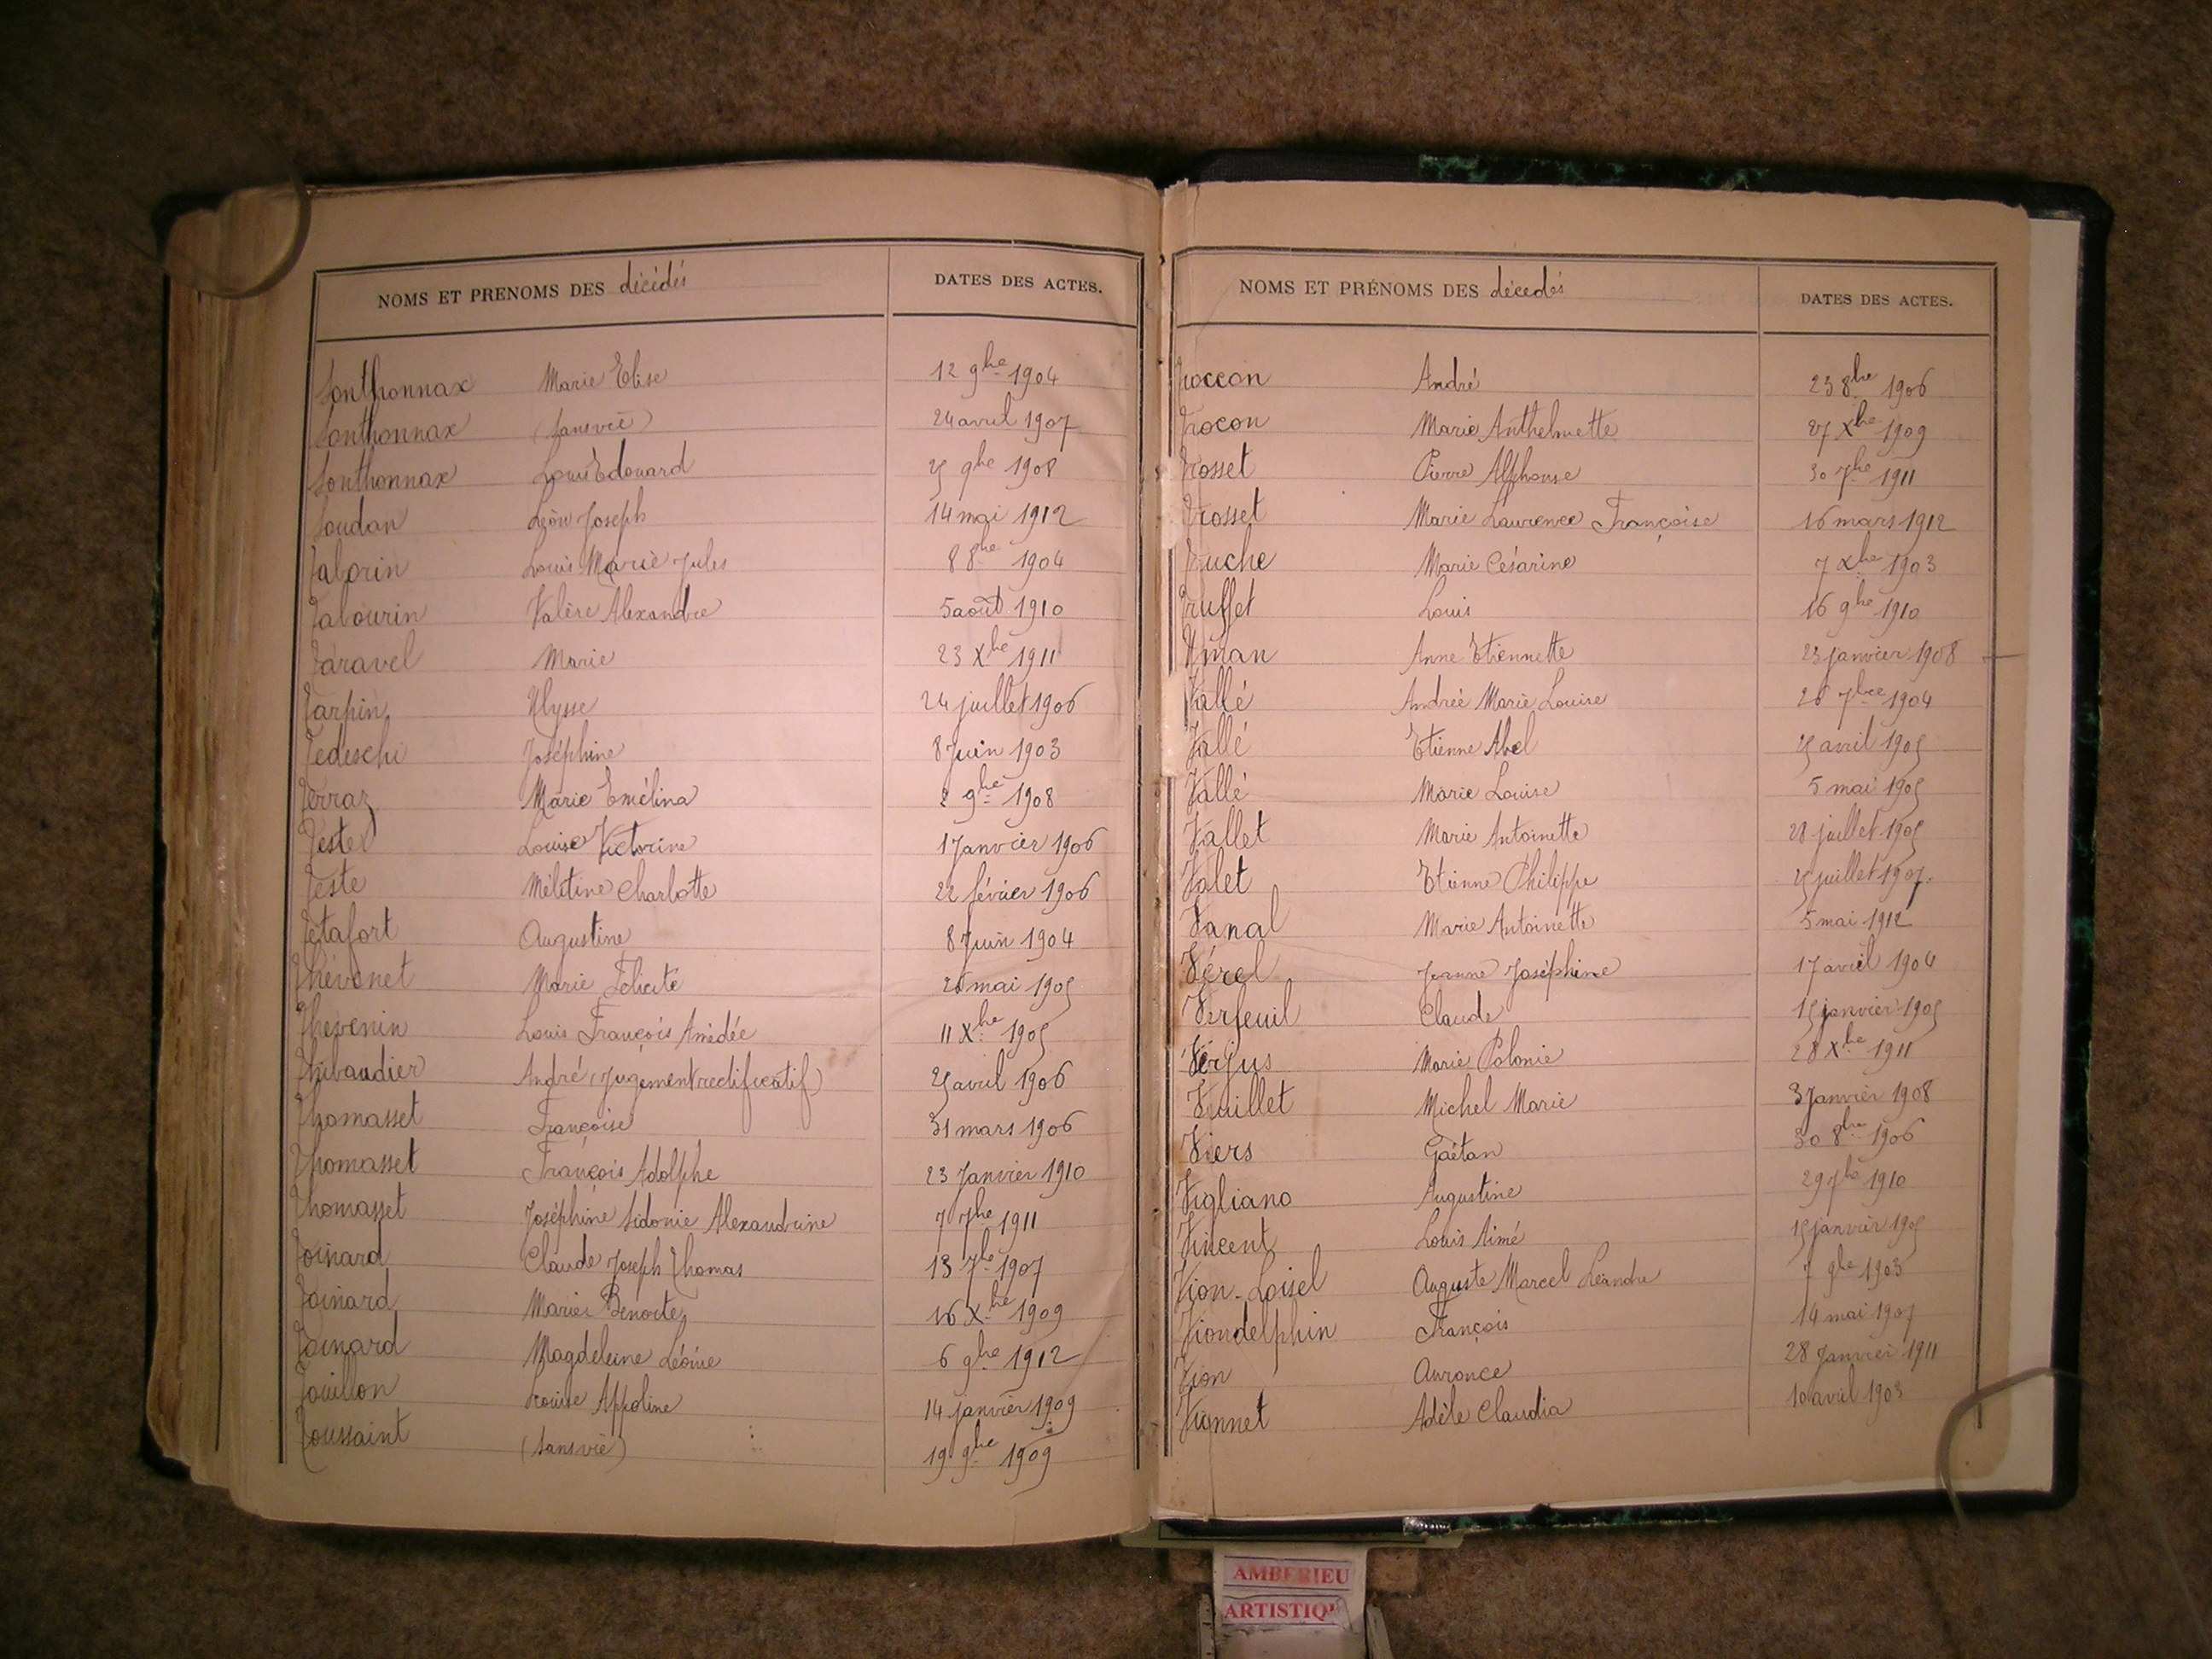 NOMS ET PRENOMS DES décédés DATES DES ACTES.
Sonthonnax Marie Elise 12 9bre 1904
Sonthonnax (Sans vie) 24 avril 1907
Sonthonnax Louis Edouard 25 9bre 1908
Soudan Léon Joseph 14 mai 1912
Taborin Louis Marie Jules 8 8bre 1904
Tabourin Valère Alexandre 5 août 1910
Taravel Marie 23 Xbre 1911
Tarpin Ulysse 24 juillet 1906
Tedeschi Joséphine 8 Juin 1903
Terraz Marie Emélina 2 9bre 1908
Teste Louise Victorine 1 Janvier 1906
Teste Mélitine Charlotte 22 février 1906
Tetafort Augustine 8 Juin 1904
Thévenet Marie Félicité 26 mai 1905
Thévenin Louis François Amédée 11 Xbre 1905
Thibaudier André (Jugement rectificatif) 25 avril 1906
Thomasset Françoise 31 mars 1906
Thomasset François Adolphe 23 Janvier 1910
Thomasset Joséphine Sidonie Alexandrine 7 7bre 1911
Toinard Claude Joseph Thomas 13 7bre 1907
Toinard Marie Benoite 16 Xbre 1909
Toinard Magdeleine Léonie 6 9bre 1912
Touillon Louise Appoline 14 janvier 1909
Toussaint (Sans vie) 19 9bre 1909
NOMS ET PRÉNOMS DES décédés DATES DES ACTES.
Troccon André 23 8bre 1906
Trocon Marie Anthelmette 27 Xbre 1909
Trosset Pierre Alphonse 30 7bre 1911
Trosset Marie Laurence Françoise 16 mars 1912
Truche Marie Césarine 7 Xbre 1903
Truffet Louis 16 9bre 1910
Uman Anne Etiennette 23 janvier 1908
Vallé Andrée Marie Louise 26 7bre 1904
Vallé Etienne Abel 25 avril 1905
Vallé Marie Louise 5 mai 1905
Vallet Marie Antoinette 28 juillet 1905
Valet Etienne Philippe 25 juillet 1907
Vanal Marie Antoinette 5 mai 1912
Vérel Jeanne Joséphine 17 avril 1904
Verfeuil Claude 15 janvier 1905
Verjus Marie Polonie 28 Xbre 1911
Viallet Michel Marie 3 Janvier 1908
Viers Gaétan 30 8bre 1906
Vigliano Augustine 29 7bre 1910
Vincent Louis Aimé 15 janvier 1905
Vion-Loisel Auguste Marcel Léandre 7 9bre 1903
Viondelphin François 14 mai 1907
Vion Auronce 28 Janvier 1911
Vionnet Adèle Claudia 10 avril 1903
AMBERIEU
ARTISTIQU